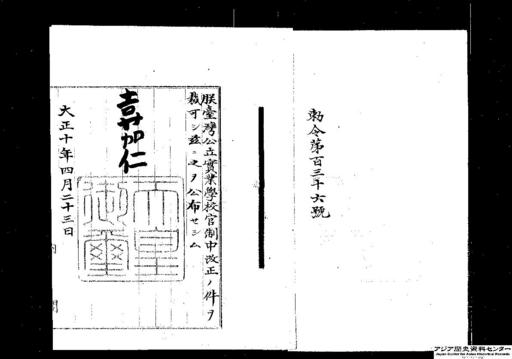 勅令第百三十六號
朕臺灣公立實業學校官制中改正ノ件ヲ
裁可シ茲ニ之ヲ公布セシム
嘉仁
天皇御璽
大正十年四月二十三日
内閣
アジア歴史資料センター
Japan Center for Asian Historical Records